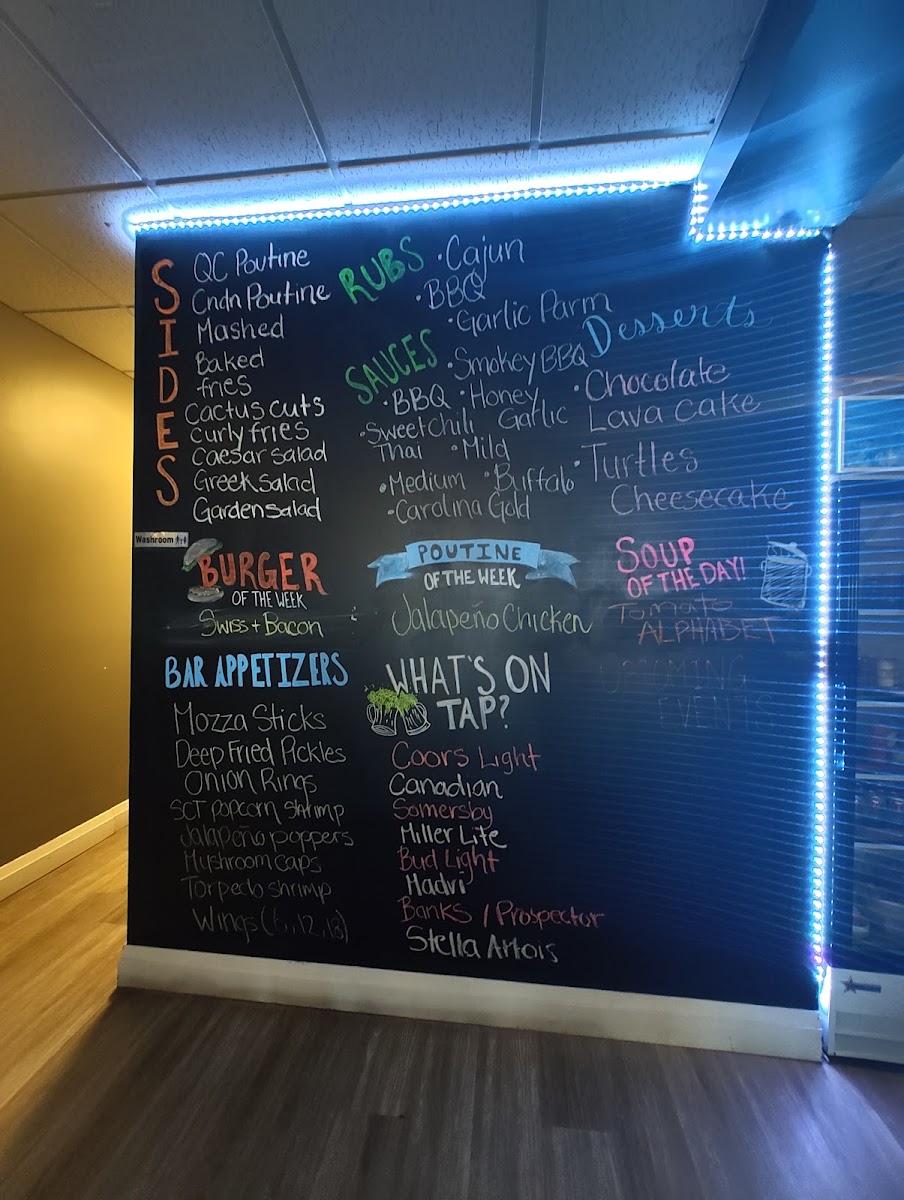 SIDES
QC Poutine
Cndn Poutine
Mashed
Baked
fries
Cactus cuts
Curly fries
Caesar salad
Greek salad
Garden salad
RUBS
• Cajun
• BBQ
• Garlic Parm
SAUCES
• Smokey BBQ
• BBQ • Honey
Garlic
• Sweet Chili
Thai • Mild
• Medium • Buffalo
• Carolina Gold
Desserts
• Chocolate
Lava cake
• Turtles
Cheesecake
Washroom
BURGER
OF THE WEEK
Swiss + Bacon
POUTINE
OF THE WEEK
Jalapeño Chicken
SOUP
OF THE DAY!
Tomato
ALPHABET
BAR APPETIZERS
Mozza Sticks
Deep Fried Pickles
Onion Rings
SCT popcorn shrimp
Jalapeño poppers
Mushroom caps
Torpedo shrimp
Wings
WHAT'S ON
TAP?
Coors Light
Canadian
Somersby
Miller Lite
Bud Light
Madri
Banks / Prospector
Stella Artois
UPCOMING
EVENTS